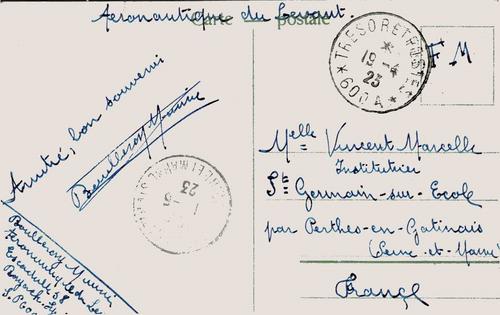 Aéronautique du Levant.
Carte postale
TRESOR ET POSTES
19-4
23
* 600 A *
F M
Amitié, bon souvenir
Bouilleroy Maurice
23
Melle Vincent Marcelle
Institutrice
St Germain-sur-Ecole
par Perthes-en-Gatinais
(Seine-et-Marne)
France
Bouilleroy Maurice
Aéronautique du Le
Escadrille 58
Rayack